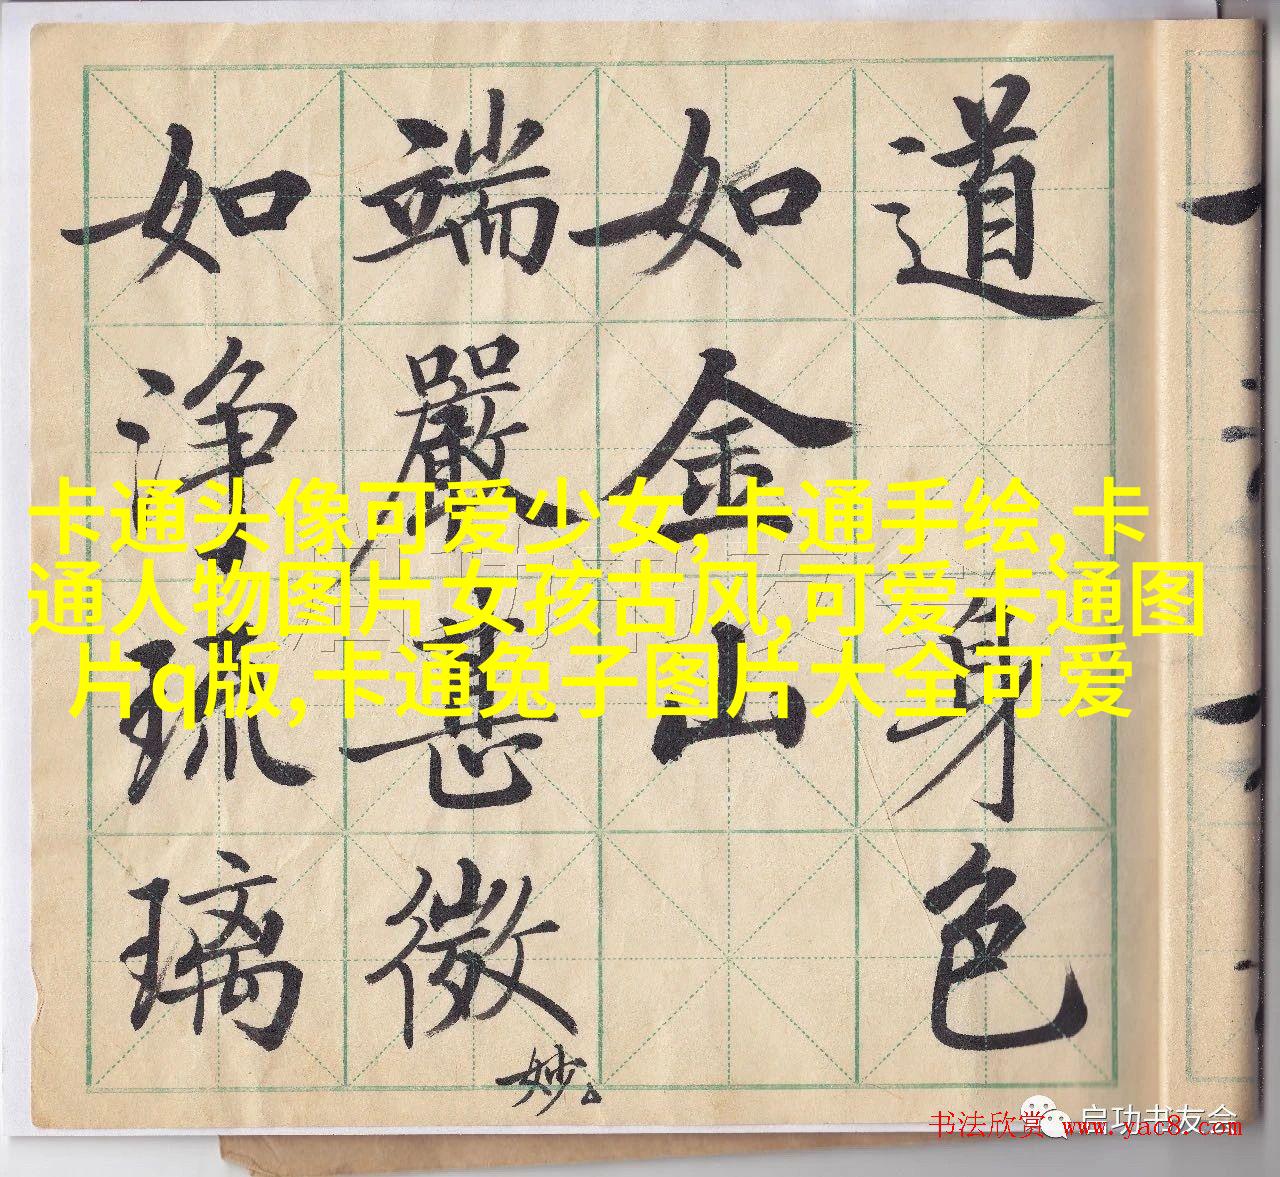 道身色
如金山
端嚴甚微妙
如净琉璃
卡通头像可爱少女,卡通手绘,卡
通人物图片女孩古风,可爱卡通图
片q版,卡通兔子图片大全可爱
启功书友会
书法欣赏 www.yac8.com